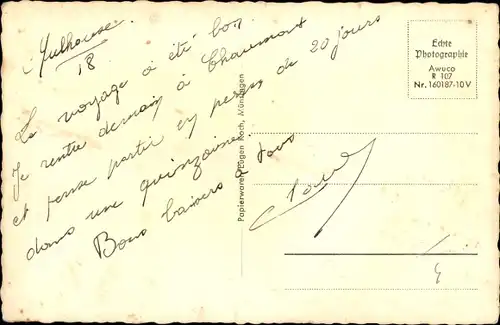 Mulhouse
18
Le voyage a été bon
Je rentre demain à Chaumont
et pense partir en perm de 20 jours
dans une quinzaine.
Bons baisers à tous
Papierwaren Eugen Koch, Münsingen
Echte
Photographie
Awuco
R 107
Nr. 160187-10V